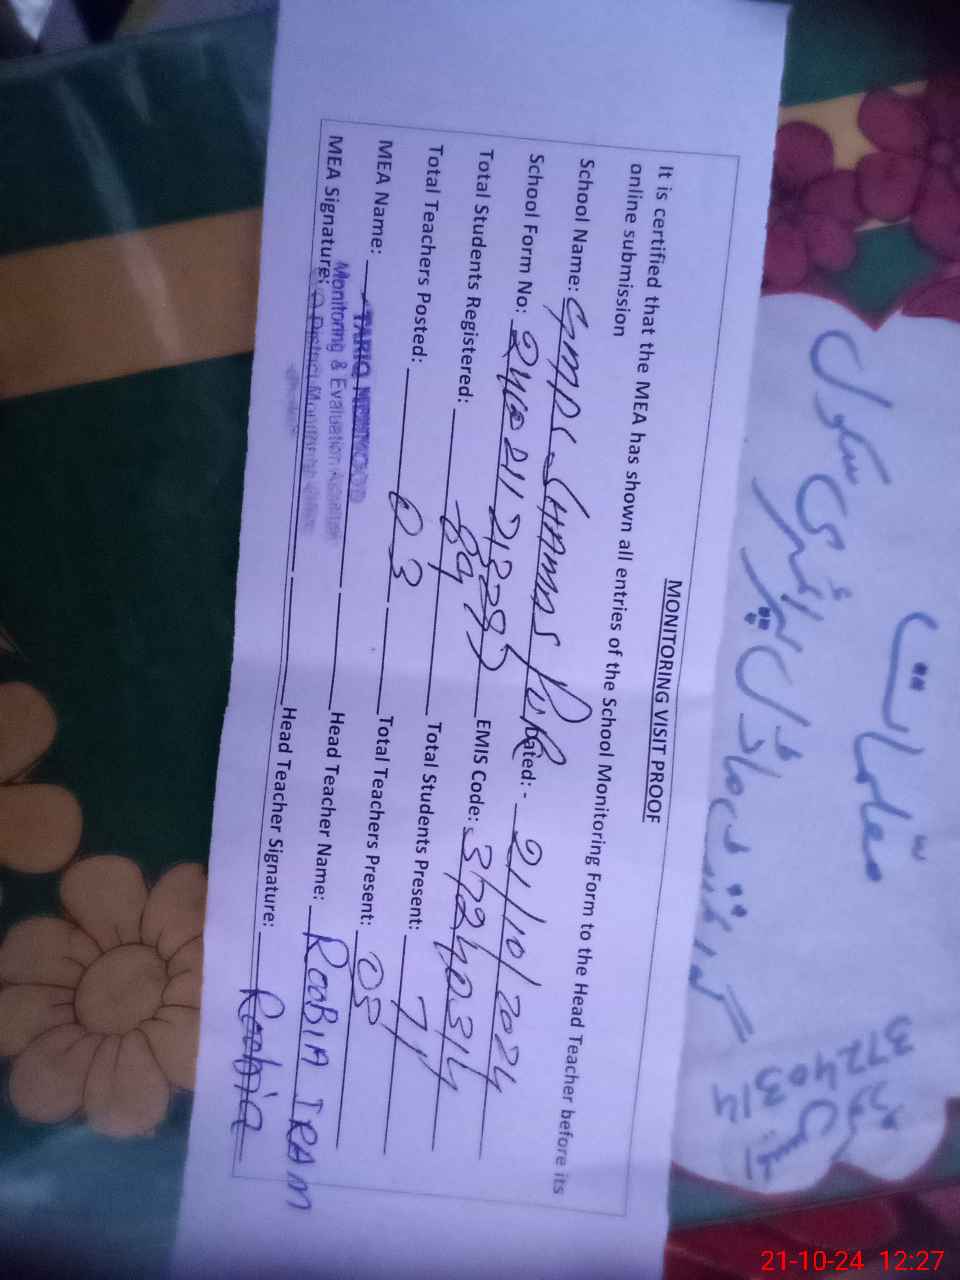 MONITORING VISIT PROOF
It is certified that the MEA has shown all entries of the School Monitoring Form to the Head Teacher before its
online submission
School Name: GMPS. SHAMAS PUR Dated: - 21/10/2024
School Form No: EMIS Code: 37240314
Total Students Registered: 89 Total Students Present: 71
Total Teachers Posted: 03 Total Teachers Present: 03
MEA Name: TARIQ MEHMOOD Head Teacher Name: ROOBIA IRAM
Monitoring & Evaluation Assistant
MEA Signature: Head Teacher Signature: Roobia
O District Monitoring Office
معلمات
گورنمنٹ ماڈل پرائمری سکول
37240314
21-10-24 12:27